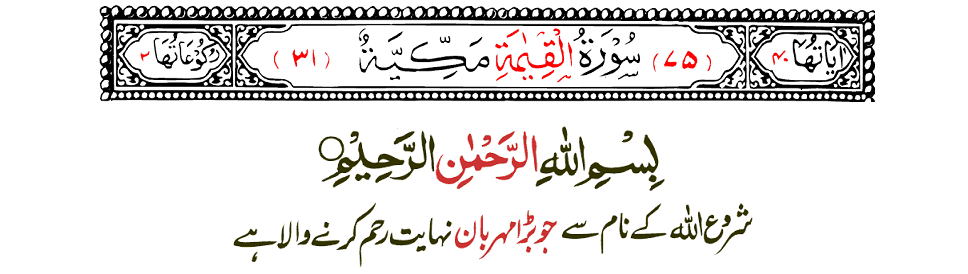 اٰيَاتُهَا ٤٠ (٧٥) سُوْرَةُ الْقِيٰمَةِ مَكِّيَّةٌ (٣١) رُكُوْعَاتُهَا ٢
بِسْمِ اللهِ الرَّحْمٰنِ الرَّحِيْمِ○
شروع اللہ کے نام سے جو بڑا مہربان نہایت رحم کرنے والا ہے